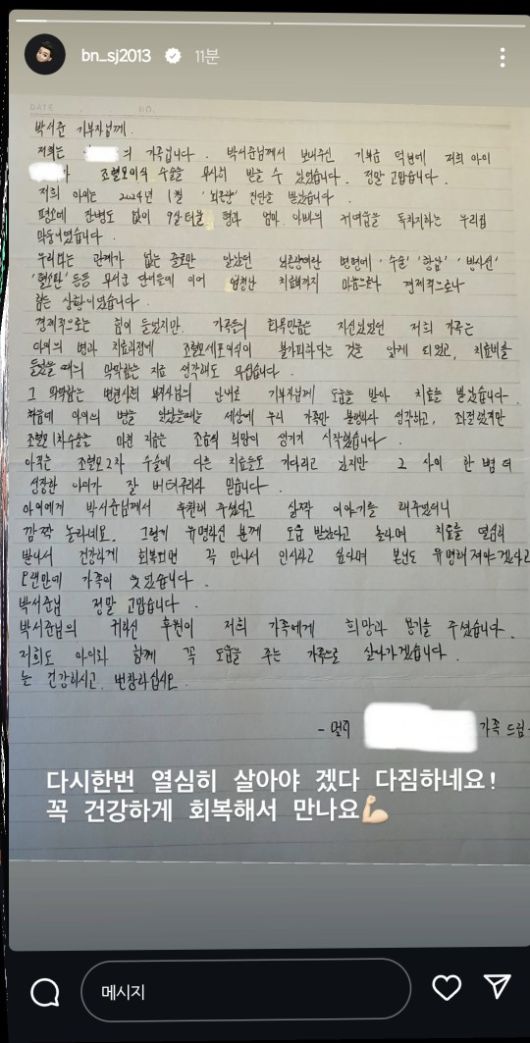 bn_sj2013 11분
DATE NO.
박서준 기부자님께.
저희는 의 가족입니다. 박서준님께서 보내주신 기부금 덕분에 저희 아이
조혈모이식 수술을 무사히 받을 수 있었습니다. 정말 고맙습니다.
저희 아이는 2024년 1월 '뇌종양' 진단을 받았습니다.
평소에 잔병도 없이 9살 터울 형과 엄마 아빠의 귀여움을 독차지하는 우리집
막둥이였습니다.
우리와는 관계가 없는 줄로만 알았던 뇌종양이란 병명에 '수술' '항암' '방사선'
'혈소판' 등등 무서운 단어들에 이어 엄청난 치료비까지 마음으로나 경제적으로나
힘든 상황이었습니다.
경제적으로는 힘이 들었지만, 가족들의 화목만큼은 자신있었던 저희 가족은
아이의 병과 치료과정에 조혈모세포이식이 불가피하다는 것을 알게 되었고, 치료비를
들었을 때의 막막함은 지금 생각해도 무섭습니다.
그 막막함은 병원사회 복지사님의 안내로 기부자님께 도움을 받아 치료를 받았습니다.
처음에 아이의 병을 알았을때는 세상에 우리 가족만 불행하다 생각하고, 좌절했지만
조혈모 1차수술을 마친 지금은 조금씩 희망이 생기기 시작했습니다.
아직은 조혈모 2차 수술에 다른 치료들도 기다리고 있지만 그 사이 한 뼘 더
성장한 아이가 잘 버텨주리라 믿습니다.
아이에게 박서준님께서 후원해 주셨다고 살짝 이야기를 해주었더니
깜짝 놀라네요. 그렇게 유명하신 분께 도움 받았다고 놀라며 치료를 열심히
받아서 건강하게 회복되면 꼭 만나서 인사하고 싶다며 본인도 유명해져야겠다고
오랜만에 가족이 웃었습니다.
박서준님 정말 고맙습니다.
박서준님의 귀하신 후원이 저희 가족에게 희망과 용기를 주셨습니다.
저희도 아이와 함께 꼭 도움을 주는 가족으로 살아가겠습니다.
늘 건강하시고, 번창하십시오.
- 멀리 가족 드림 -
다시한번 열심히 살아야 겠다 다짐하네요!
꼭 건강하게 회복해서 만나요💪🏻
메시지